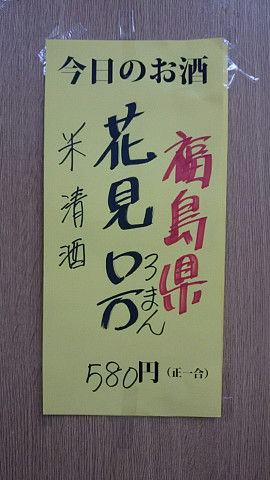 今日のお酒
福島県
花見ロ万
ろまん
米清酒
580円(正一合)